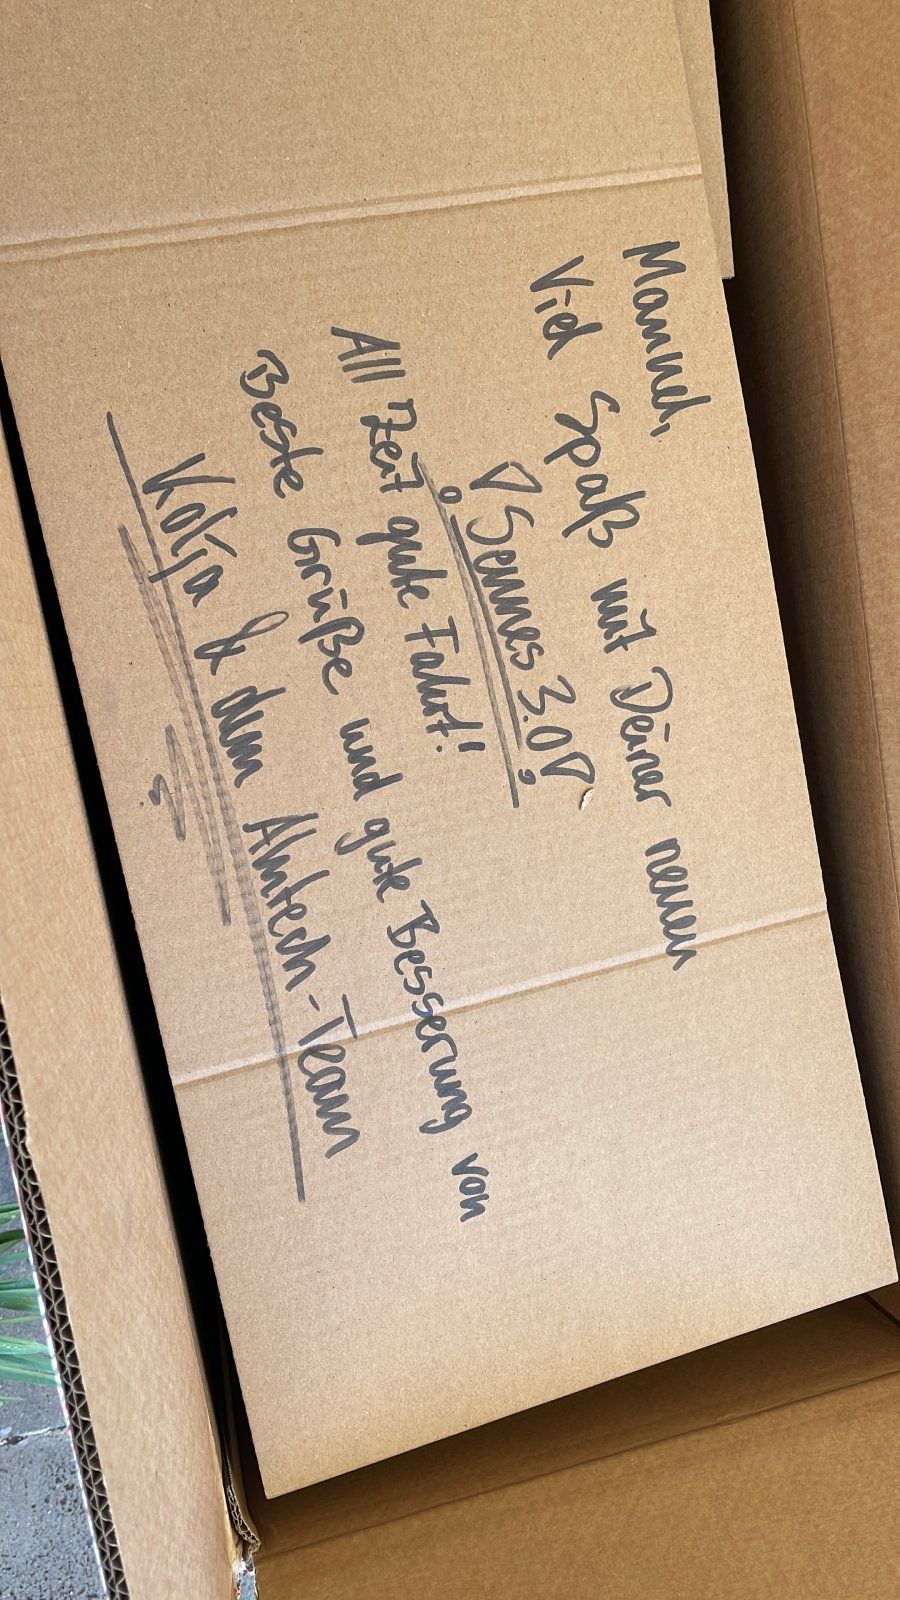 Manuel,
Viel Spaß mit Deiner neuen
¡Sennes 3.0!
All Zeit gute Fahrt!
Beste Grüße und gute Besserung von
Kolja & dem Alutech-Team